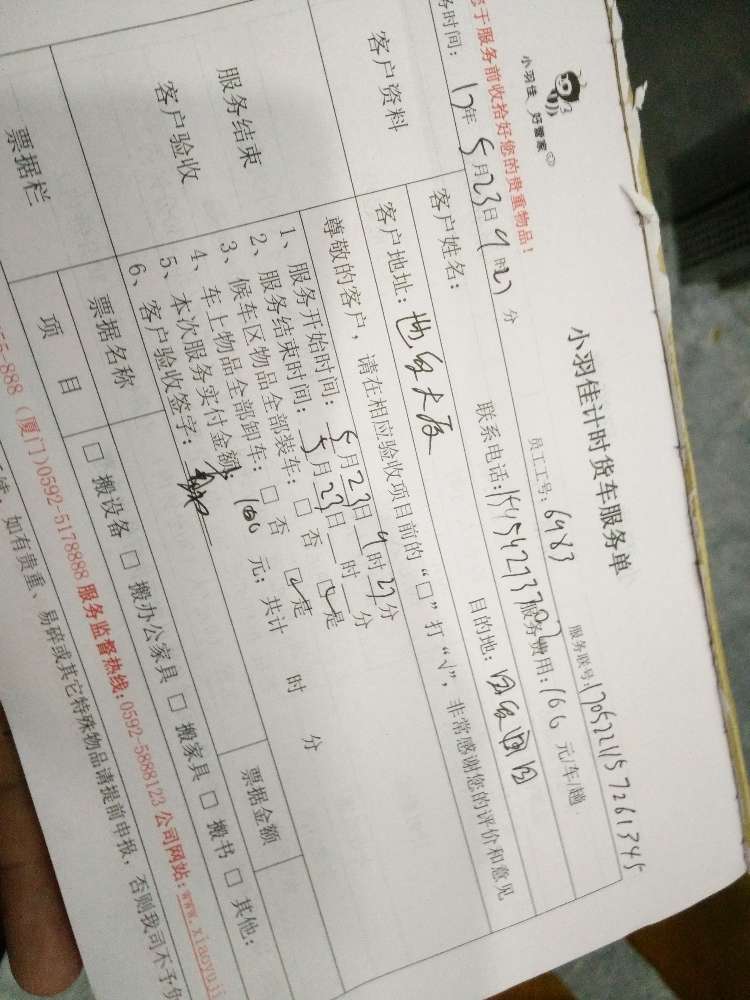 小羽佳 好管家
小羽佳计时货车服务单
于服务前收拾好您的贵重物品!
员工工号: 6983
服务联号:
务时间: 17年5月23日9时27分
服务费用:160元/车/趟
客户资料
客户姓名:
联系电话:
客户地址: 世贸大厦
目的地:
尊敬的客户,请在相应验收项目前的“□”打“√”,非常感谢您的评价和意见
服务结束
客户验收
1、服务开始时间: 5月23日9时27分
2、服务结束时间: 5月23日 时 分
3、候车区物品全部装车: □否 ☑是
4、车上物品全部卸车: □否 ☑是
5、本次服务实付金额: 160 元; 共计 时 分
6、客户验收签字:
票据栏
票据名称
票据金额
项目
□搬设备 □搬办公家具 □搬家具 □搬书 □其他:
55-888 (厦门)0592-5178888 服务监督热线:0592-5888123 公司网站:www.xiaoyuj
如有贵重、易碎或其它特殊物品请提前申报,否则我司不予